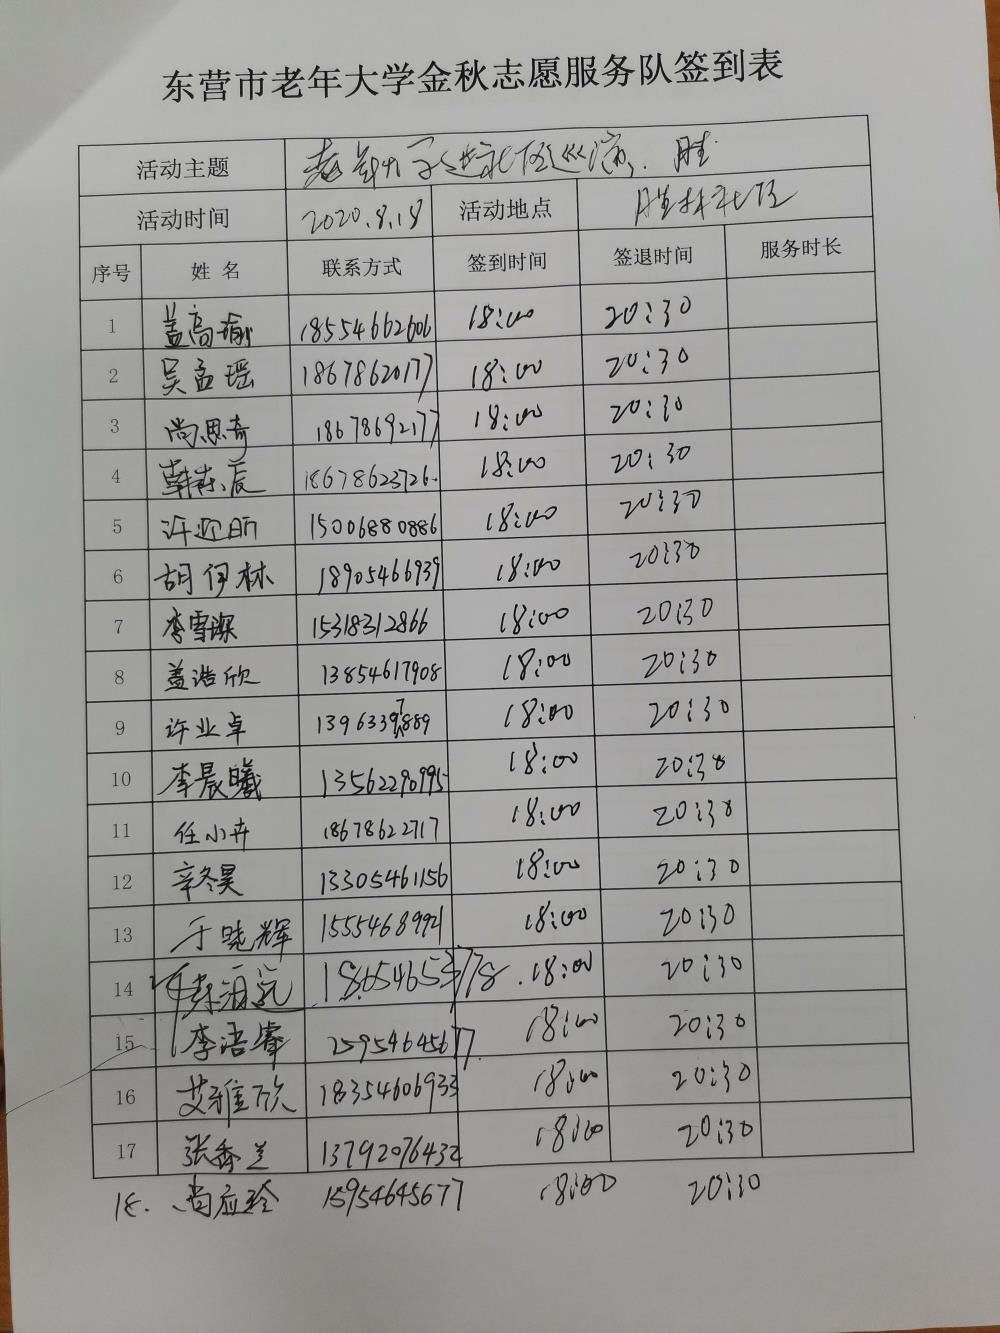 东营市老年大学金秋志愿服务队签到表
活动主题 进社区巡演
活动时间 2020.8.18 活动地点 胜林社区
序号 姓 名 联系方式 签到时间 签退时间 服务时长
1 盖高瑜 18554662606 18:00 20:30
2 吴孟瑶 18678620177 18:00 20:30
3 尚思奇 18678692177 18:00 20:30
4 韩森辰 18678623726. 18:00 20:30
5 许迎昕 15006880886 18:00 20:30
6 胡伊林 18905466939 18:00 20:30
7 李雪琛 15318312866 18:00 20:30
8 盖浩欣 13854617908 18:00 20:30
9 许业卓 18:00 20:30
10 李晨曦 13562290995 18:00 20:30
11 任小卉 18678622717 18:00 20:30
12 辛冬昊 13305461156 18:00 20:30
13 于晓辉 15554689921 18:00 20:30
14 18:00 20:30
15 李浩睿 18:00 20:30
16 艾雅欣 18354606933 18:00 20:30
17 张香兰 13792076432 18:00 20:30
18. 尚应玲 15954645677 18:00 20:30